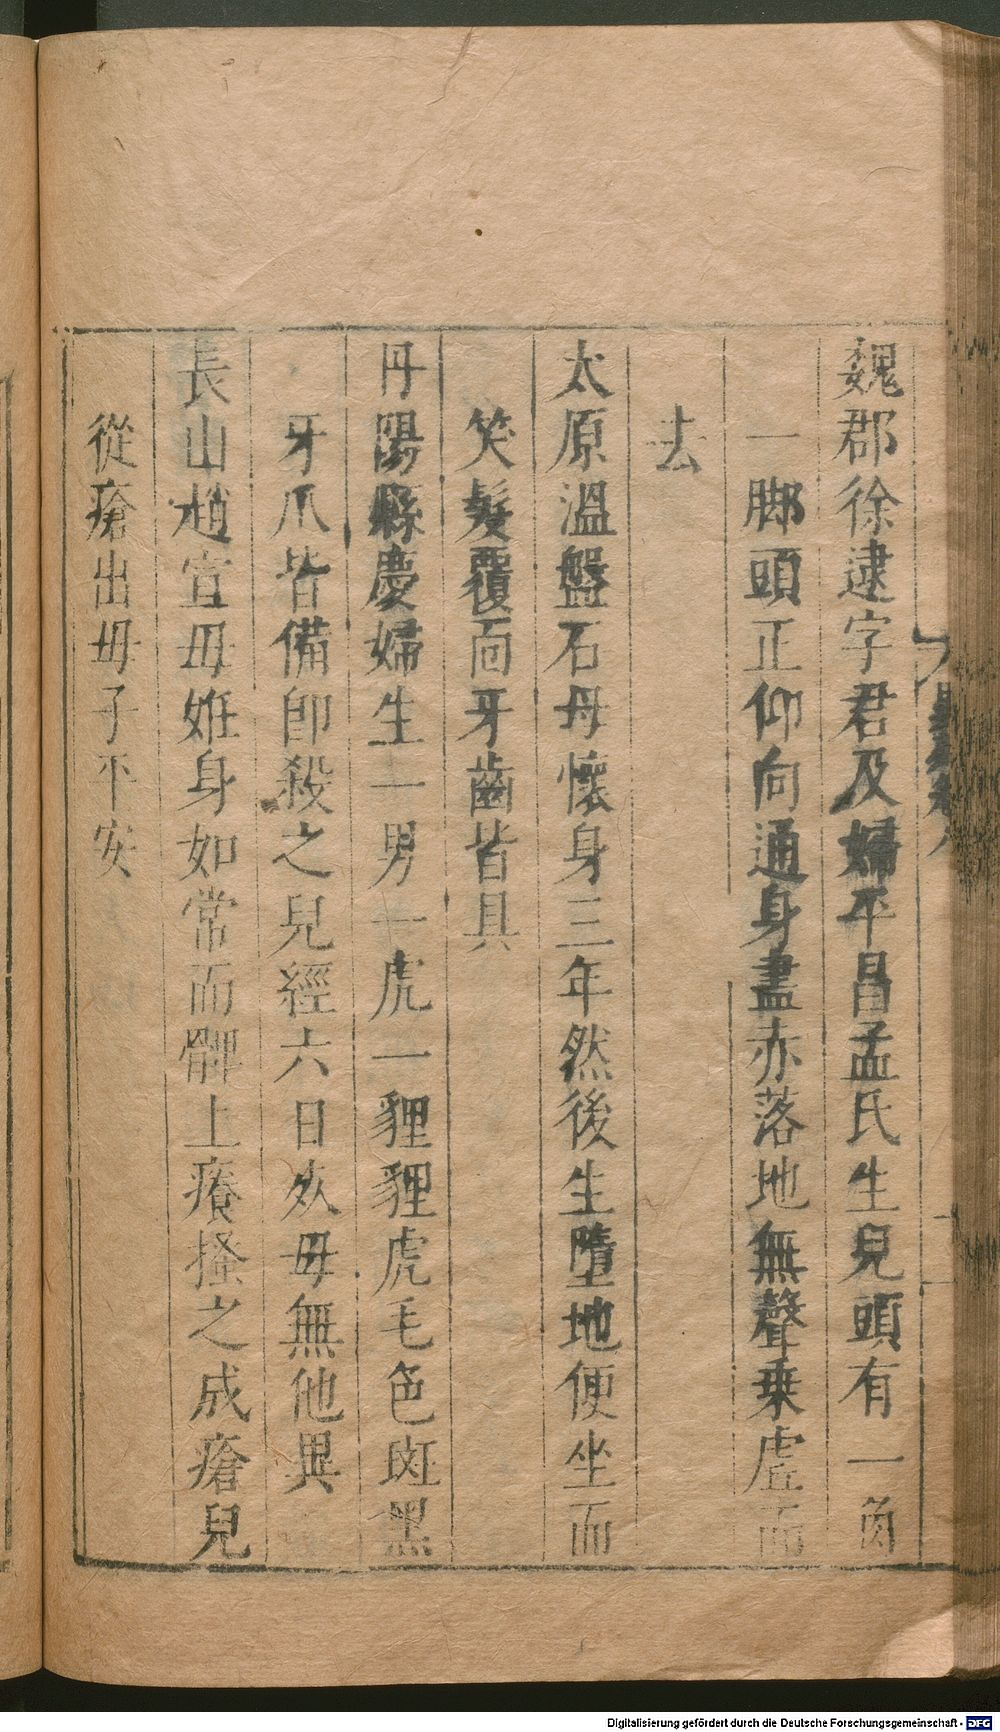 魏郡徐逮字君及婦平昌孟氏生兒頭有一角
一脚頭正仰向通身盡赤落地無聲乗虛而
去
太原溫盤石母懷身三年然後生墮地便坐而
笑髮覆面牙齒皆具
丹陽縣慶婦生一男一虎一貍貍虎毛色斑黑
牙爪皆備卽殺之兒經六日死母無他異
長山趙宣母姙身如常而髀上癢搔之成瘡兒
從瘡出母子平安
Digitalisierung gefördert durch die Deutsche Forschungsgemeinschaft - DFG